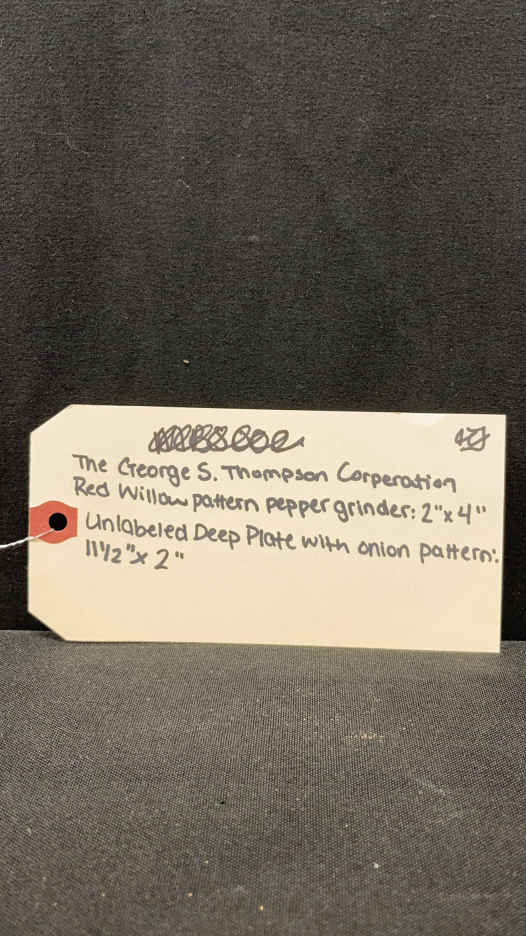 The George S. Thompson Corperation
Red Willow pattern pepper grinder: 2"x 4"
Unlabeled Deep Plate with onion pattern:
11 1/2"x 2"